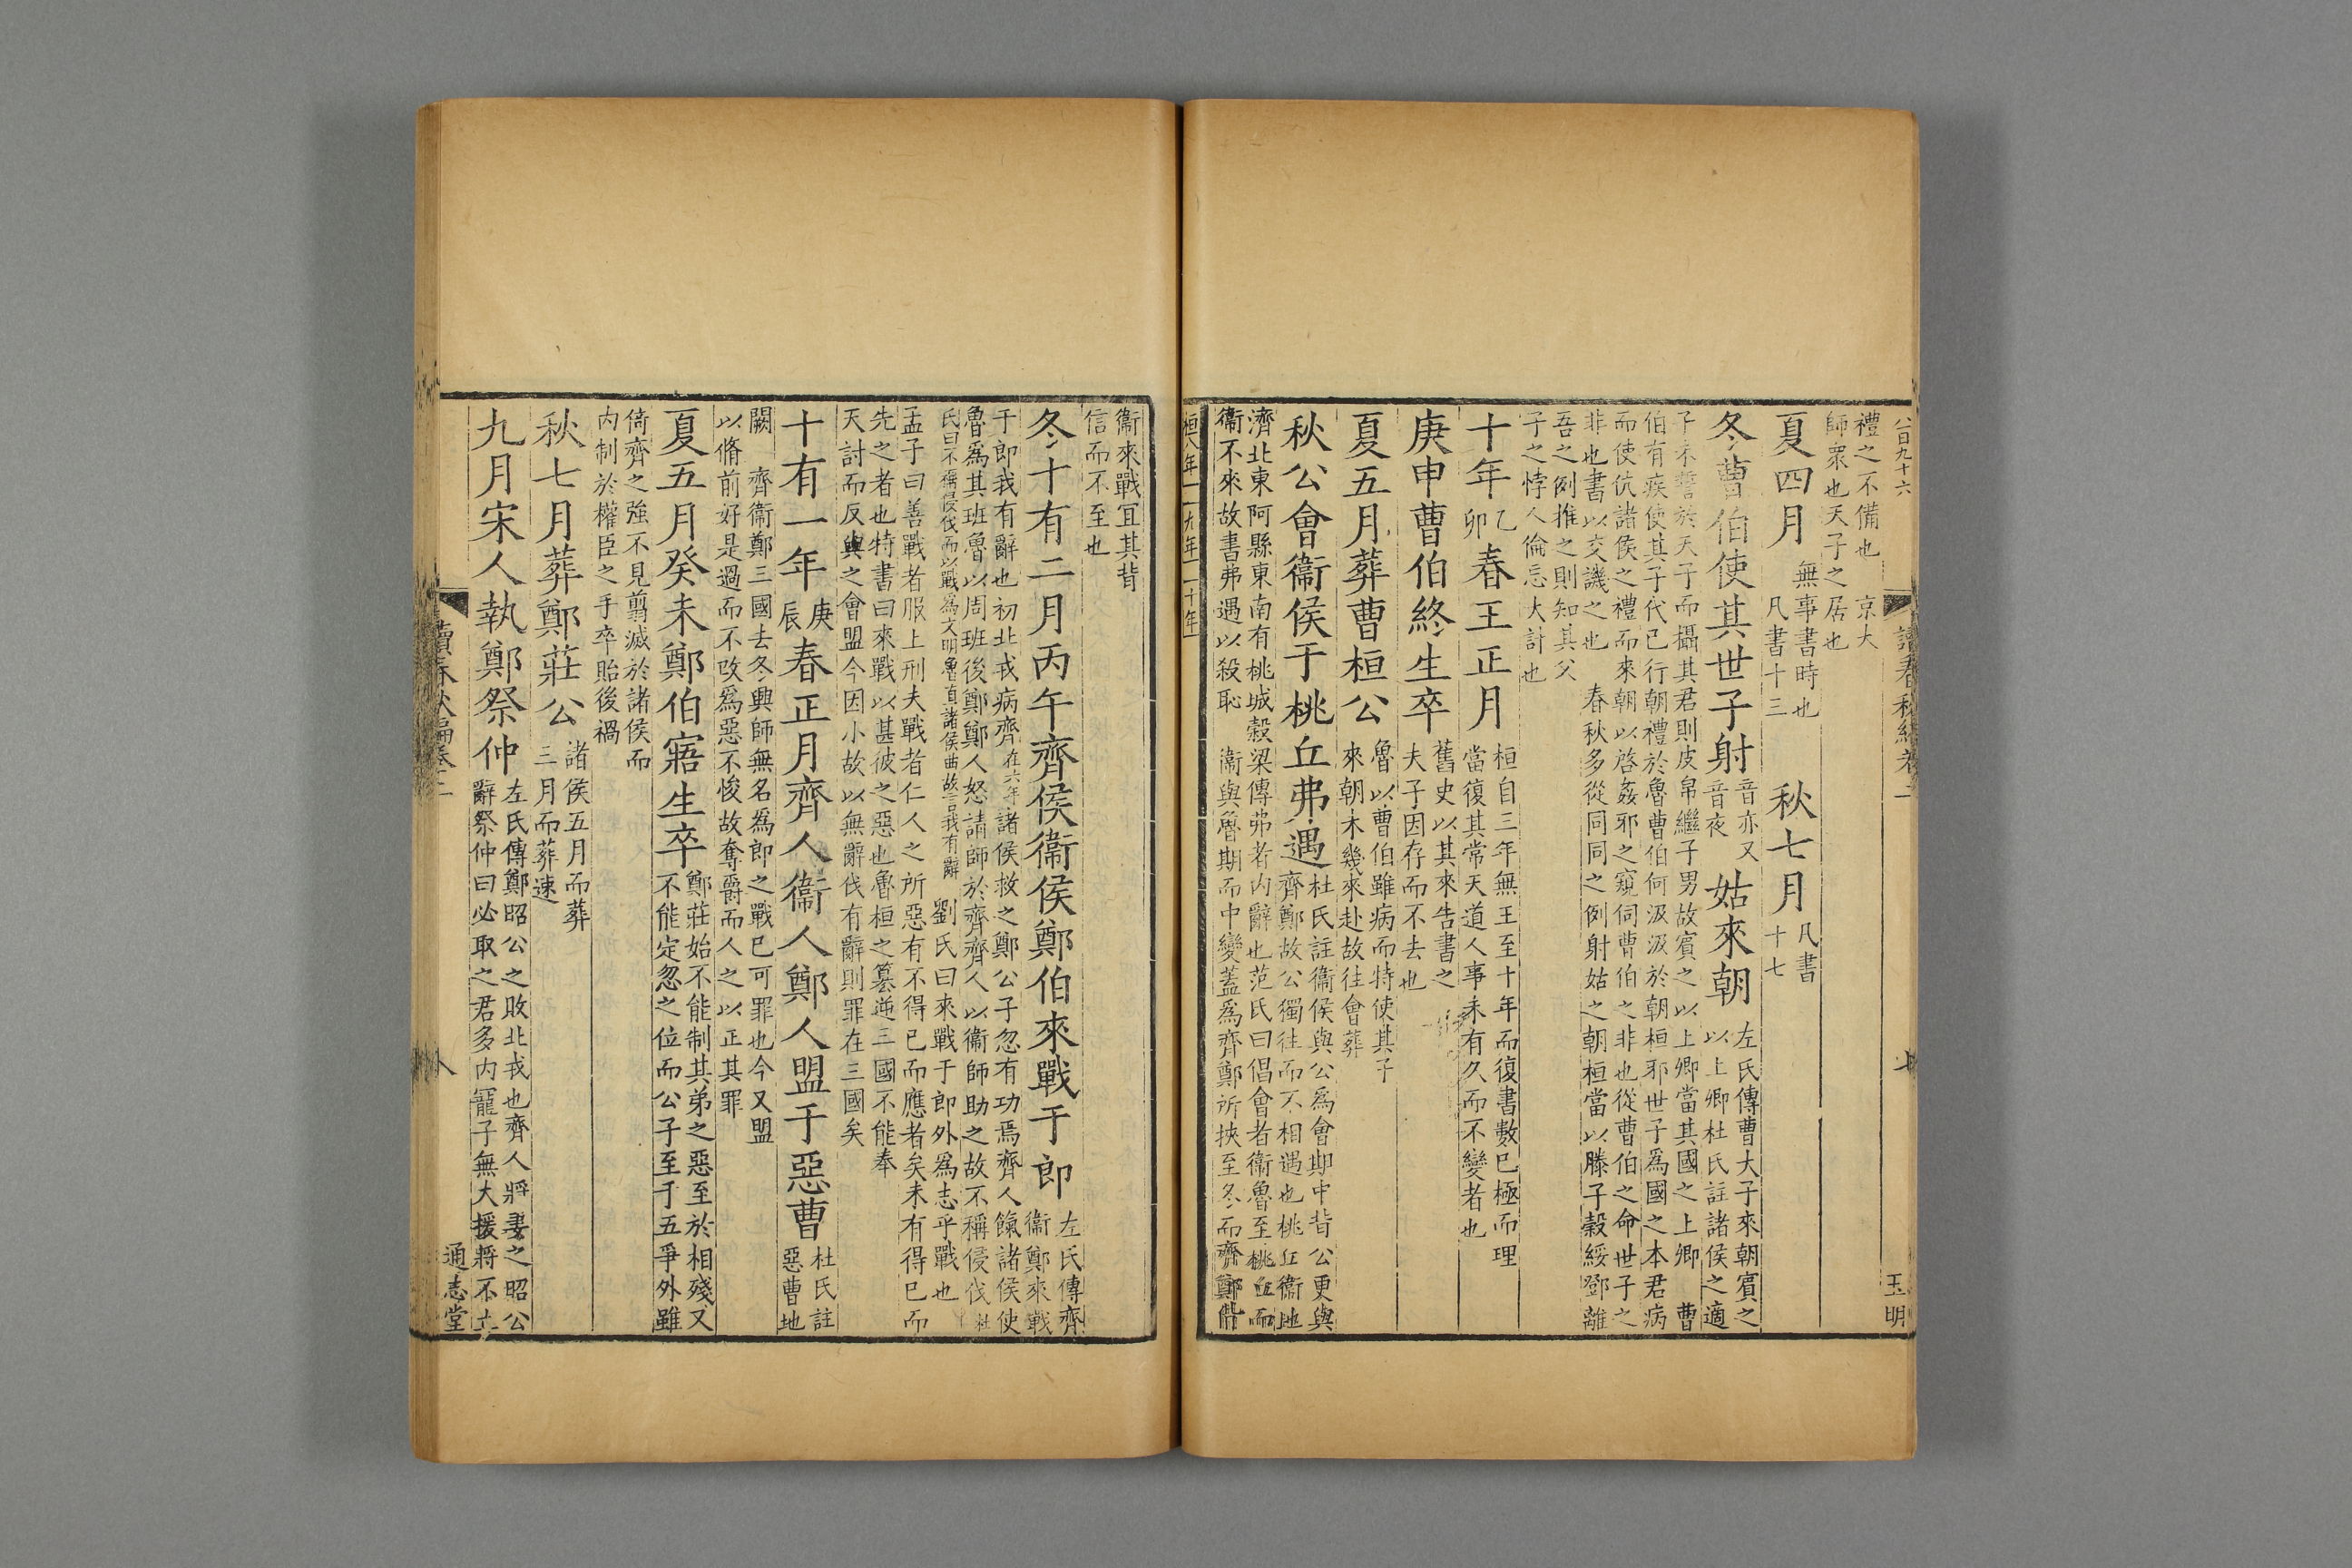 八百九十六
讀春秋編卷二
七
玉明
禮之不備也　京大
師衆也天子之居也
夏四月　無事書時也
凡書十三
秋七月　凡書
十七
冬曹伯使其世子射　音亦又
音夜
姑來朝　左氏傳曹大子來朝賓之
以上卿杜氏註諸侯之適
子未誓於天子而攝其君則皮帛繼子男故賓之以上卿當其國之上卿　曹
伯有疾使其子代已行朝禮於魯曹伯何汲汲於朝桓耶世子爲國之本君病
而使伉諸侯之禮而來朝以啓姦邪之窺伺曹伯之非也從曹伯之命世子之
非也書以交譏之也　春秋多從同同之例射姑之朝桓當以滕子穀綏鄧離
吾之例推之則知其父
子之悖人倫忘大討也
十年　乙
卯
春王正月　桓自三年無王至十年而復書數已極而理
當復其常天道人事未有久而不變者也
庚申曹伯終生卒　舊史以其來告書之
夫子因存而不去也
夏五月葬曹桓公　魯以曹伯雖病而特使其子
來朝未幾來赴故往會葬
秋公會衞侯于桃丘弗遇　杜氏註衞侯與公爲會期中背公更與
齊鄭故公獨往而不相遇也桃丘衞地
濟北東阿縣東南有桃城穀梁傳弗者内辭也范氏曰倡會者衞魯至桃丘而
衞不來故書弗遇以殺恥　衞與魯期而中變蓋爲齊鄭所挾至冬而齊鄭偕
桓八年　九年　十年
衞來戰宜其背
信而不至也
冬十有二月丙午齊侯衞侯鄭伯來戰于郎　左氏傳齊
衞鄭來戰
于郎我有辭也初北戎病齊在六年諸侯救之鄭公子忽有功焉齊人餼諸侯使
魯爲其班魯以周班後鄭鄭人怒請師於齊齊人以衞師助之故不稱侵伐杜
氏曰不稱侵伐而以戰爲文明魯直諸侯曲故言我有辭　劉氏曰來戰于郎外爲志乎戰也
孟子曰善戰者服上刑夫戰者仁人之所惡有不得已而應者矣未有得已而
先之者也特書曰來戰以甚彼之惡也魯桓之簒逆三國不能奉
天討而反輿之會盟今因小故以無辭伐有辭則罪在三國矣
十有一年　庚
辰
春正月齊人衞人鄭人盟于惡曹　杜氏註
惡曹地
闕　齊衞鄭三國去冬興師無名爲郎之戰已可罪也今又盟
以脩前好是過而不攺爲惡不悛故奪爵而人之以正其罪
夏五月癸未鄭伯寤生卒　鄭莊始不能制其弟之惡至於相殘又
不能定忽之位而公子至于五爭外雖
倚齊之強不見翦滅於諸侯而
内制於權臣之手卒貽後禍
秋七月葬鄭莊公　諸侯五月而葬
三月而葬速
九月宋人執鄭祭仲　左氏傳鄭昭公之敗北戎也齊人將妻之昭公
辭祭仲曰必取之君多内寵子無大援將不立
讀春秋編卷二
八
通志堂